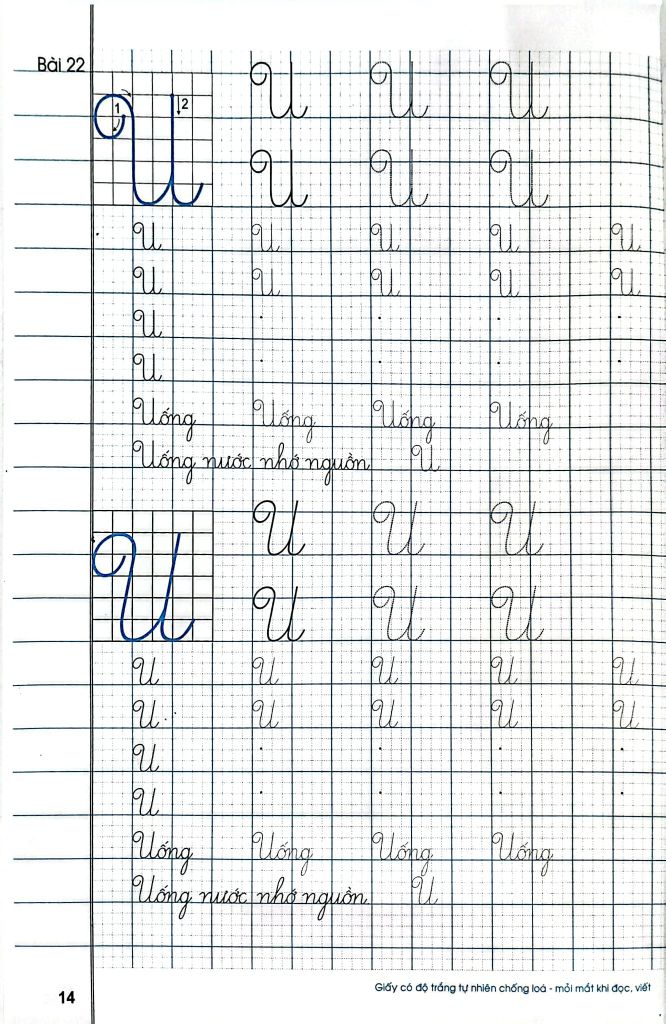 Bài 22
1 2 U U U
U U U
U U U U U
U U U U U
U
U
Uống Uống Uống Uống
Uống nước nhớ nguồn U
U U U U
U U U
U U U U U
U U U U U
U
U
Uống Uống Uống Uống
Uống nước nhớ nguồn U
14
Giấy có độ trắng tự nhiên chống loá - mỏi mắt khi đọc, viết